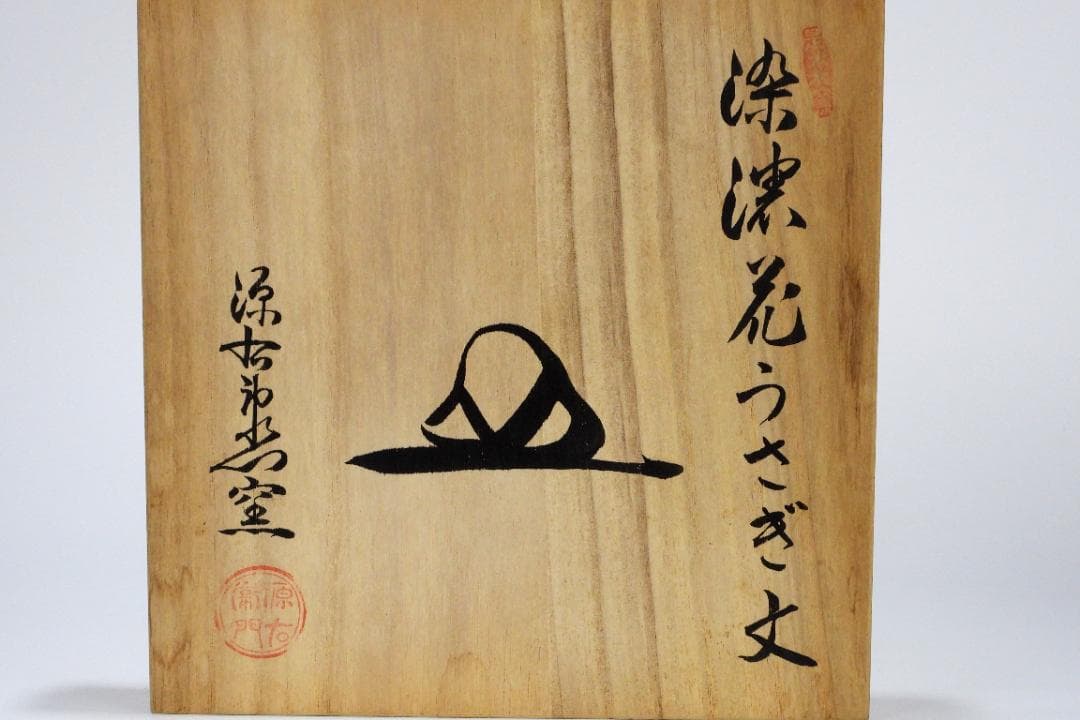 染濃花うさぎ文
源右衛門窯
源右
衛門